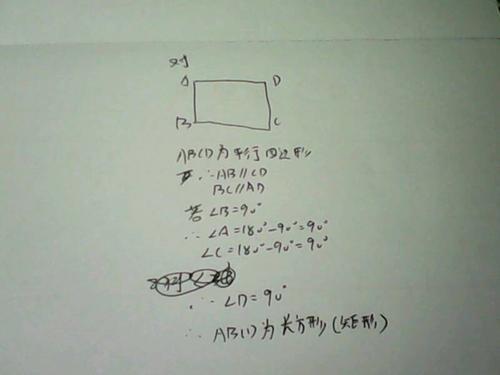 对
A D
B C
ABCD为平行四边形
∴AB∥CD
BC∥AD
若∠B=90°
∴∠A=180°-90°=90°
∠C=180°-90°=90°
∴∠D=90°
∴ABCD为长方形(矩形)